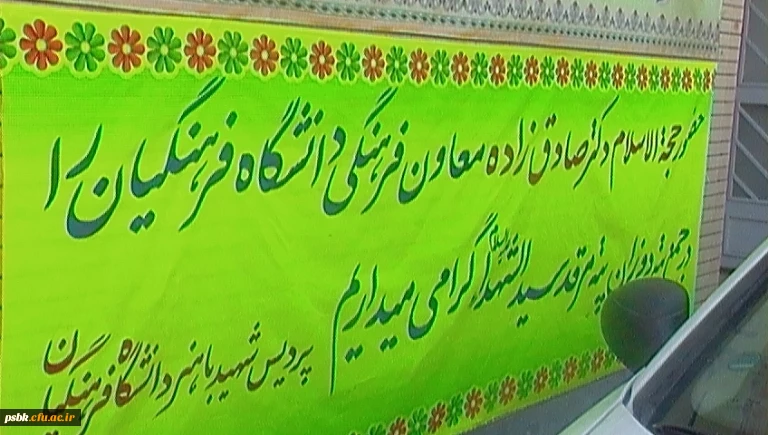 حضور حجة الاسلام دکتر صادق زاده معاون فرهنگی دانشگاه فرهنگیان را
در جمع مرقد سید الشهدا گرامی میداریم
پردیس شهید باهنر دانشگاه فرهنگیان
psbk.cfu.ac.ir